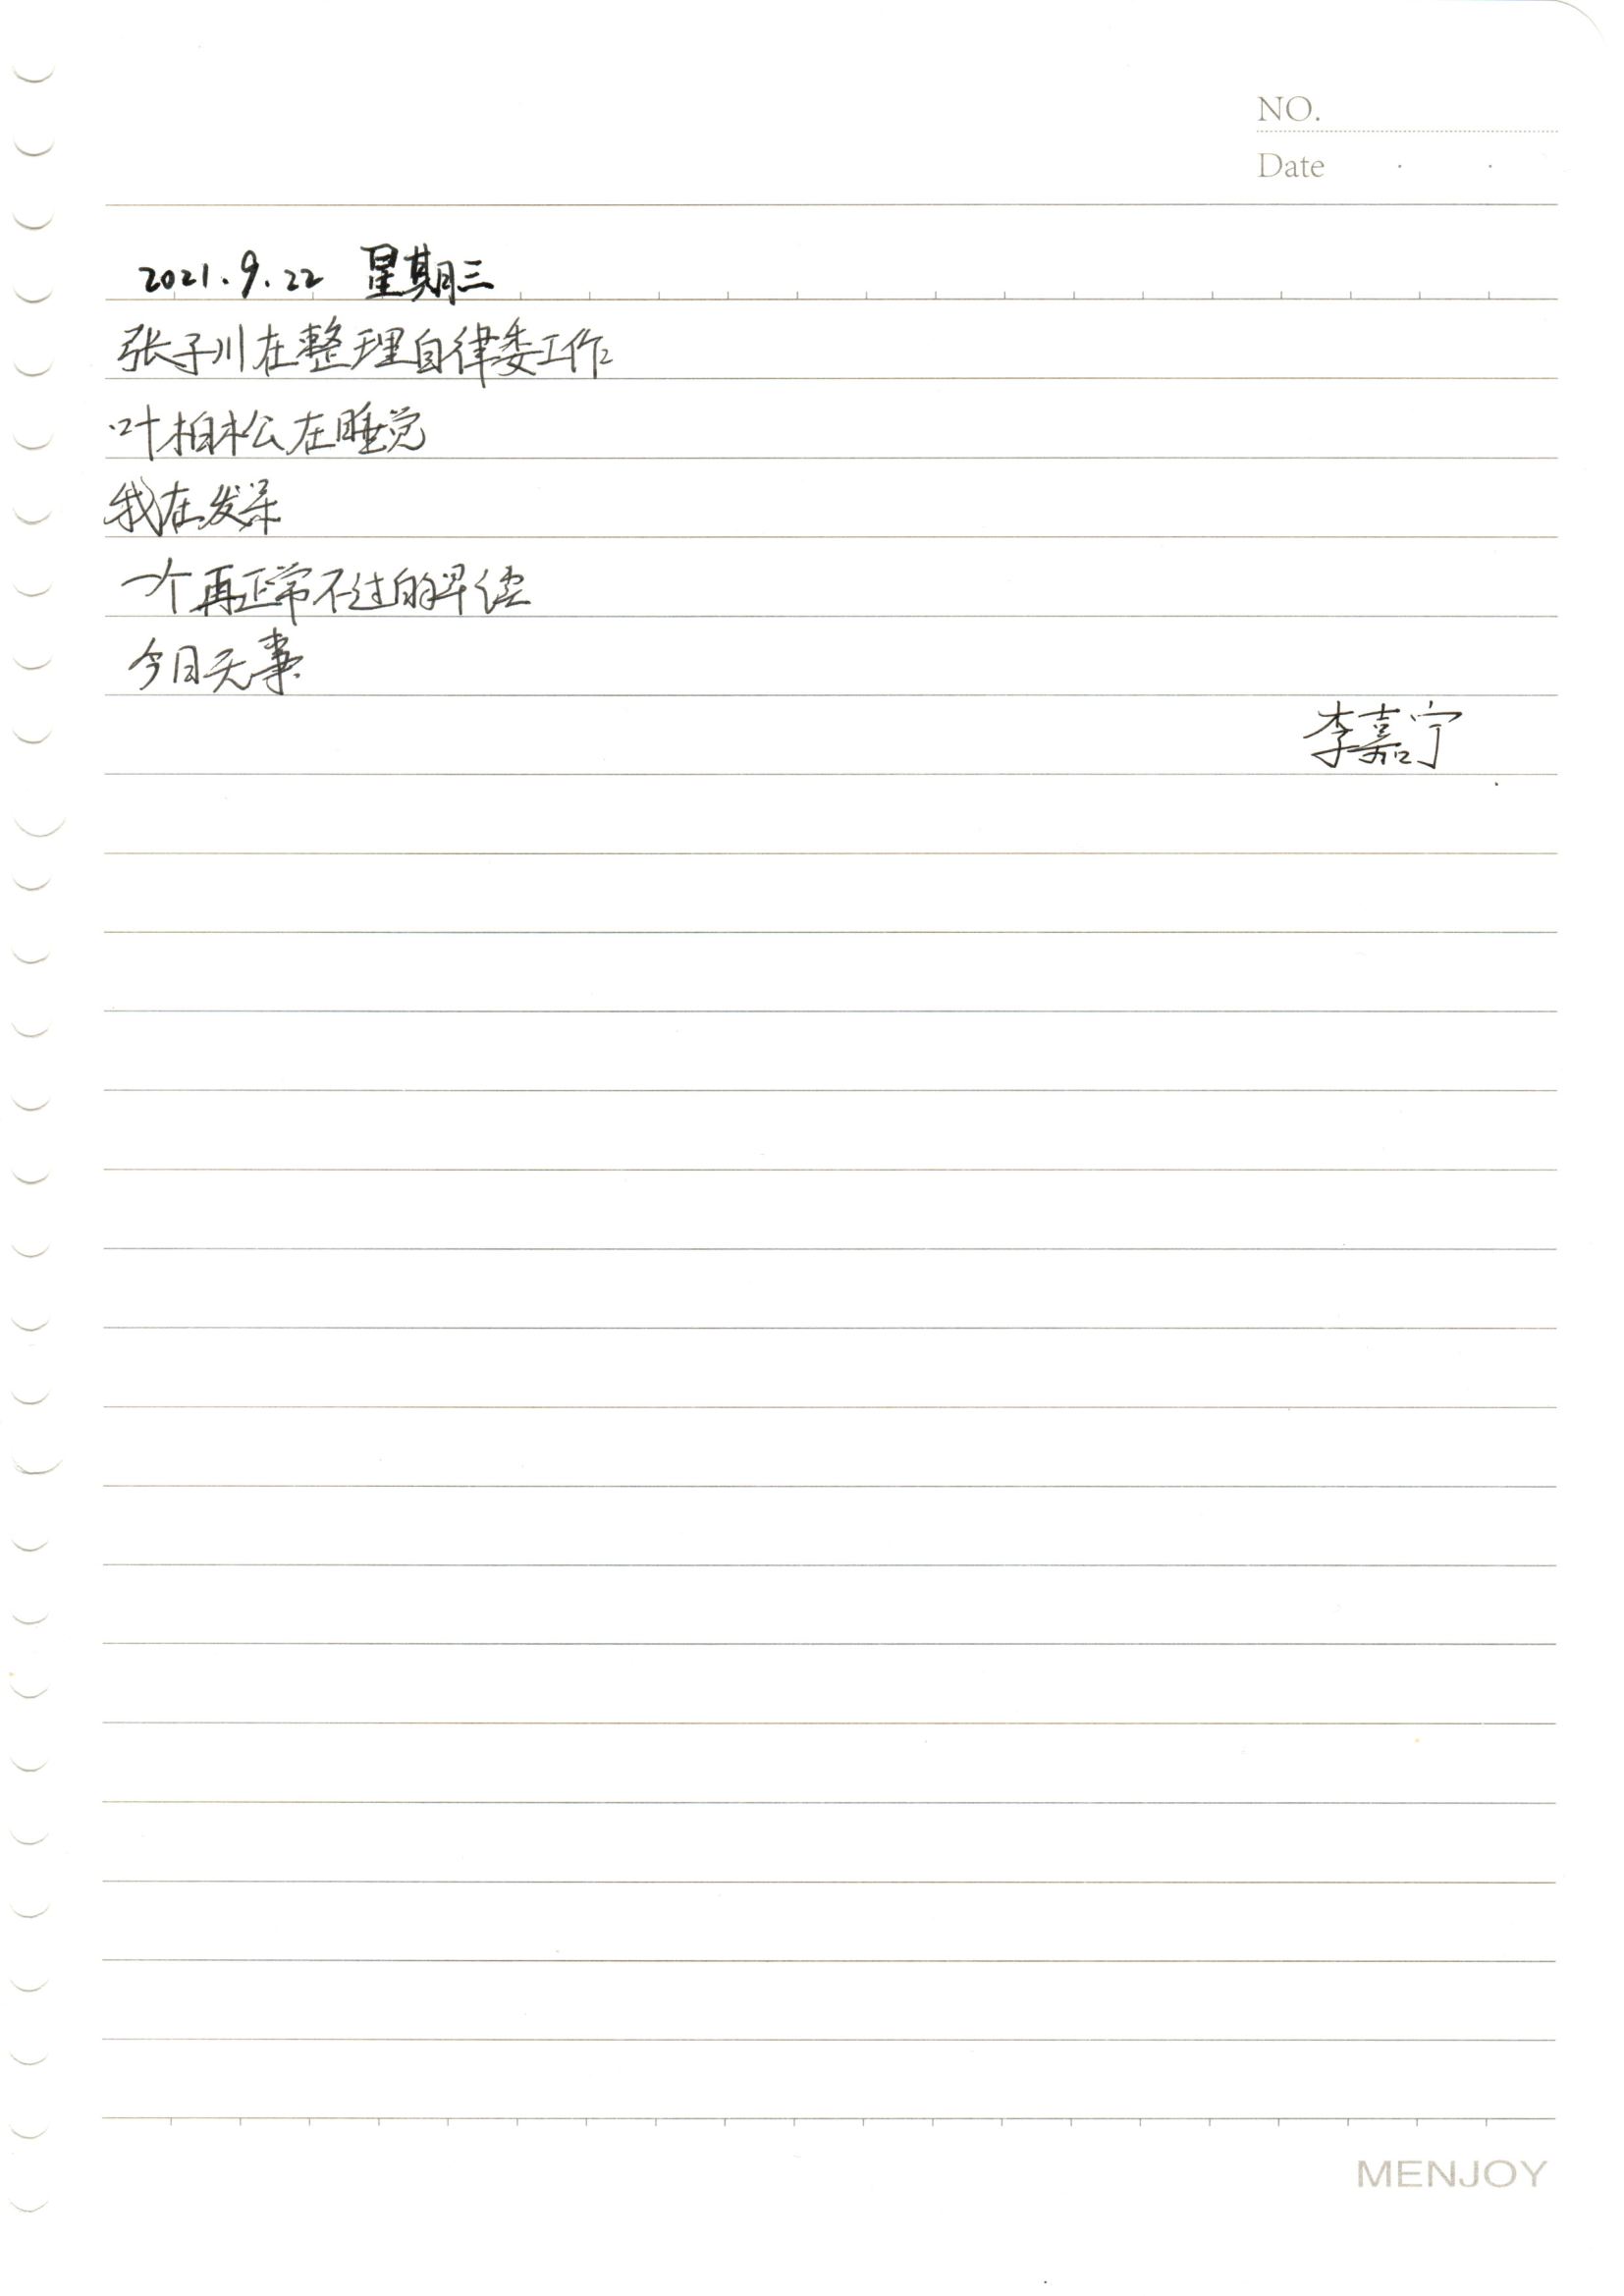 NO.
Date . .
2021.9.22 星期三
张子川在整理自律委工作
叶柏松在睡觉
我在发呆
一个再正常不过的早读
今日无事
李嘉宁
MENJOY